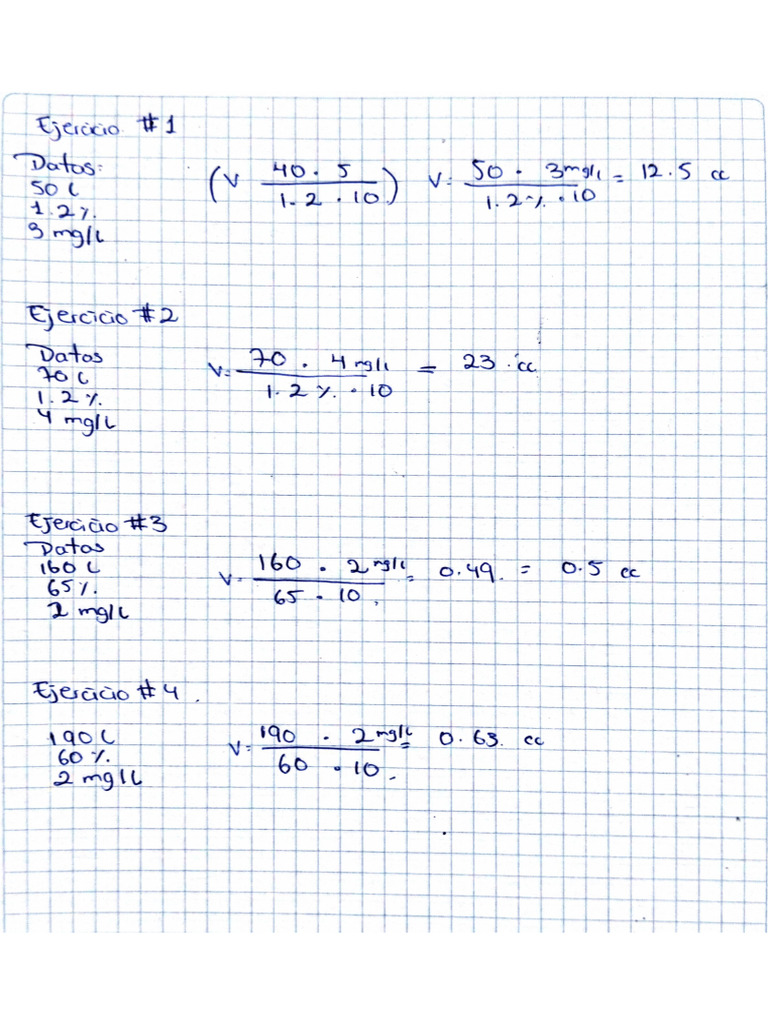 Ejercicio #1
Datos:
50 L
1.2%.
3 mg/L
(V 40 · 5 / 1.2 · 10) V= 50 · 3mg/L / 1.2% · 10 = 12.5 cc
Ejercicio #2
Datos
70 L
1.2%.
4 mg/L
V= 70 · 4mg/L / 1.2% · 10 = 23 cc
Ejercicio #3
Datos
160 L
65%.
2 mg/L
V= 160 · 2mg/L / 65 · 10 = 0.49 = 0.5 cc
Ejercicio #4.
190 L
60%.
2 mg/L
V= 190 · 2mg/L / 60 · 10 = 0.63 cc